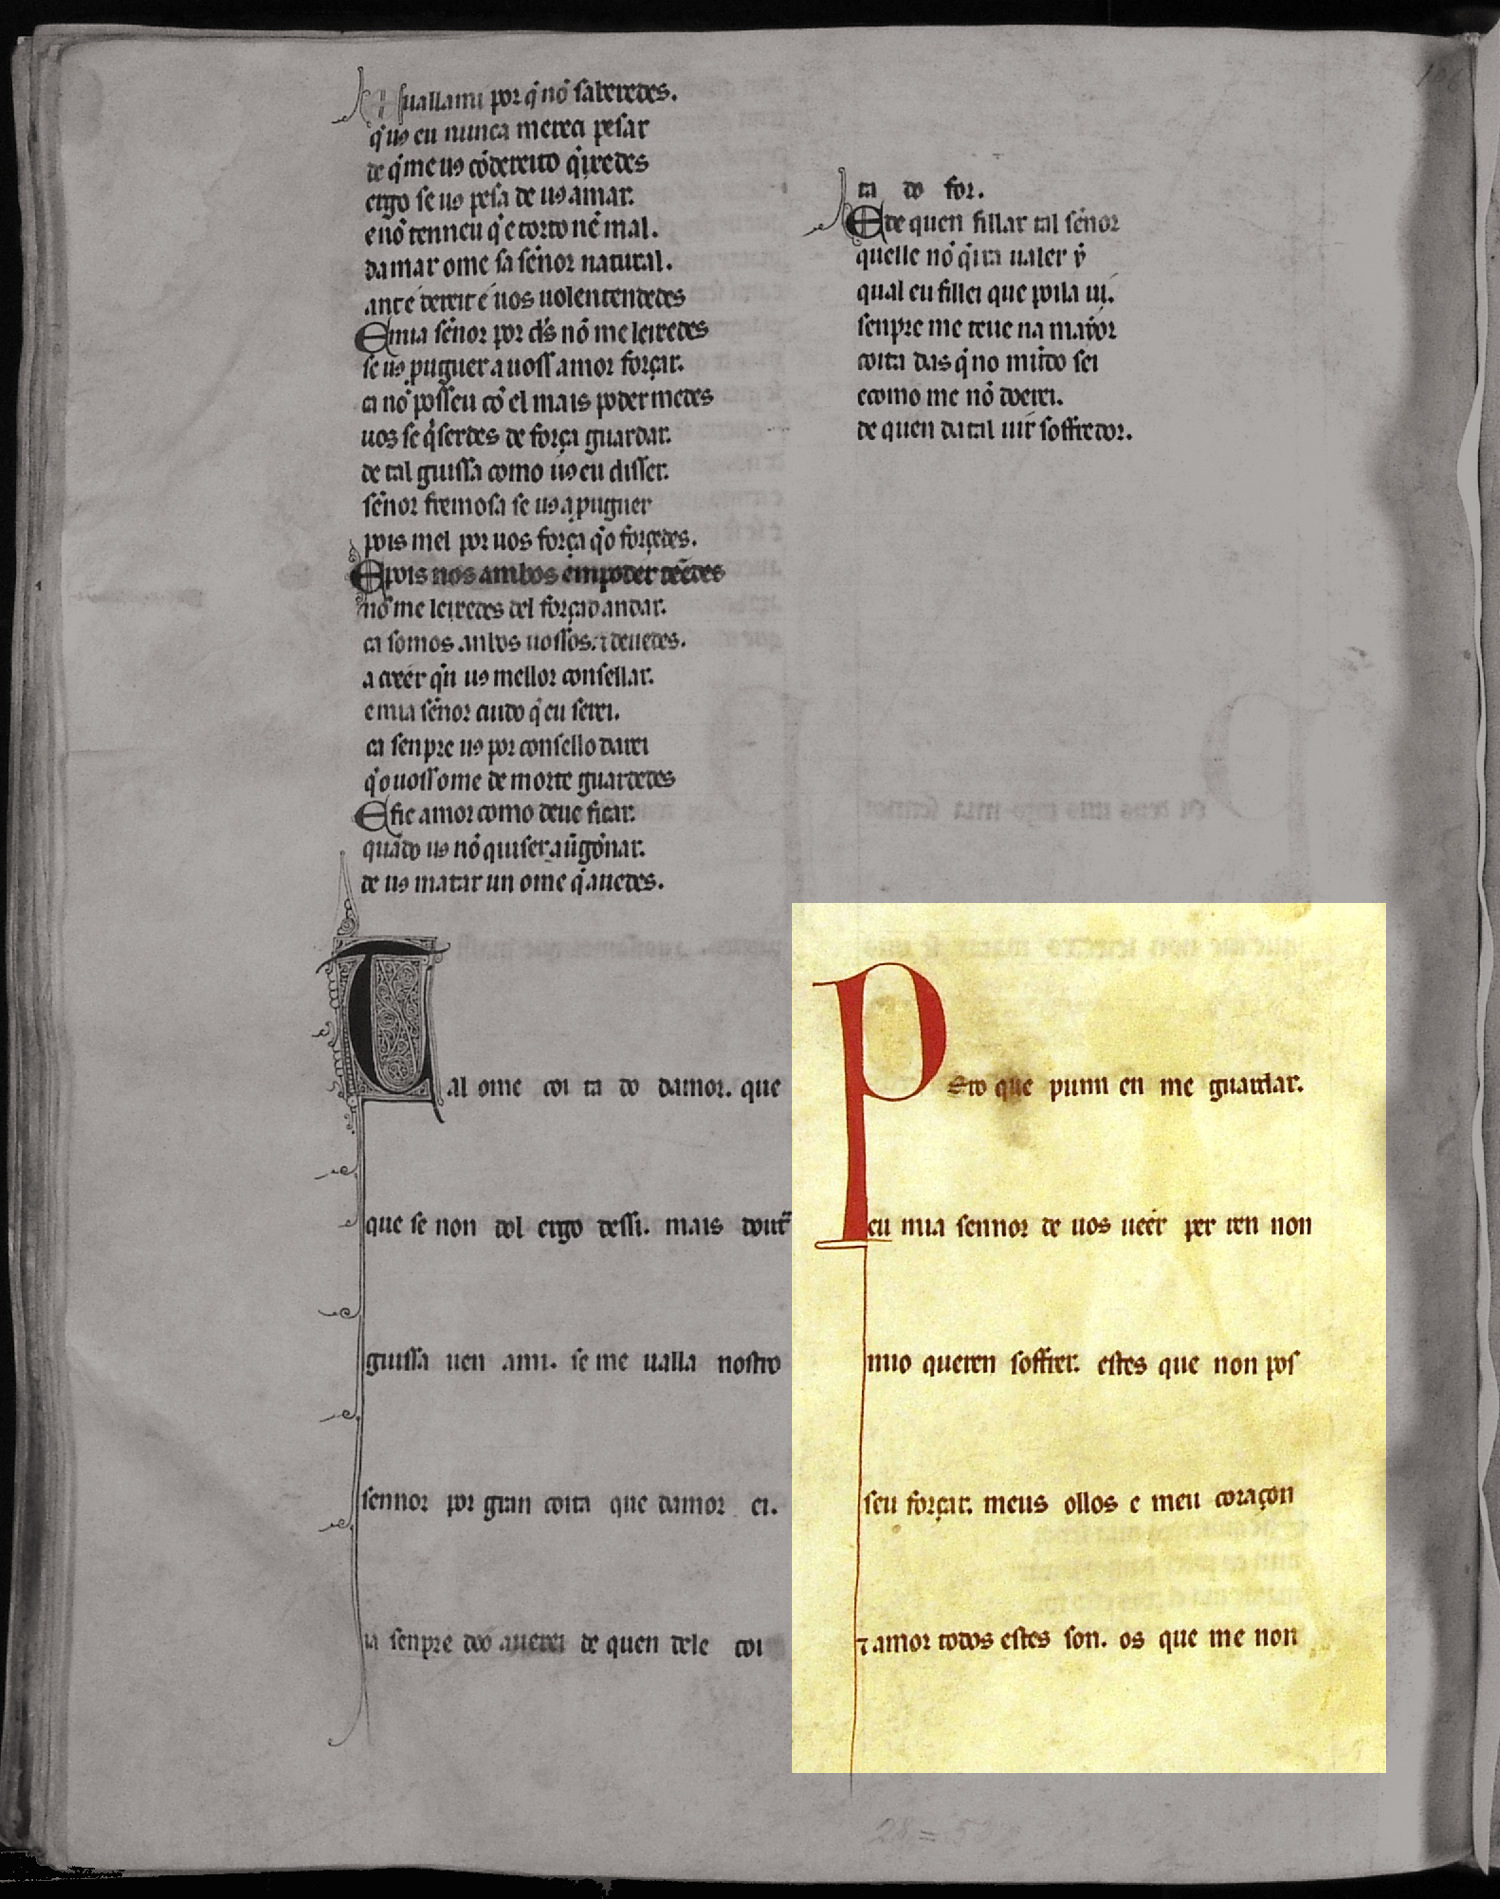 suallami por q̃ nõ saberedes.
q̃ uꝯ eu nunca mereci pesar
de q̃ me uꝯ cõ dereito q̃ixedes
ergo se uꝯ pesa de uꝯ amar.
e nõ tenneu q̃ e torto nẽ mal.
damar ome sa sẽnor natural.
ant é dereit é uos uolentendedes
E mia sẽnor por d̃s nõ me leixedes
se uꝯ puguer a uoss amor forçar.
ca nõ posseu cõ el mais poder medes
uos se q̃serdes de força guardar.
de tal guissa como uꝯ eu disser.
sẽnor fremosa se uꝯ a puguer
pois mel por uos força q̃ o forcedes.
E pois nos ambos em poder tẽedes
nõ me leixedes del forçad andar.
ca somos anbos uossos. ⁊ deuedes.
a creer q̃n uꝯ mellor consellar.
e mia sẽnor cuido q̃ eu serei.
ca senpre uꝯ por consello darei
q̃ o uoss ome de morte guardedes
E fic amor como deue ficar.
quãdo uꝯ nõ quiser a ũgõnar.
de uꝯ matar un ome q̃ auedes.
Tal ome coi ta do damor. que
que se non dol ergo dessi. mais doutᷓ
guissa uen ami. se me ualla nostro
sennor por gran coita que damor ei.
ia senpre doo auerei de quen dele coi
ta do for.
E de quen fillar tal sẽnor
quelle nõ q̃ira ualer ẏ
qual eu fillei que poila ui.
senpre me teue na maẏor
coita das q̃ no mũdo sei
e como me nõ doerei.
de quen da tal uir soffredor.
Pero que punn en me guardar.
eu mia sennor de uos ueer per ren non
mio queren soffrer. estes que non pos
seu forçar. meus ollos e meu coraçon
⁊ amor todos estes son. os que me non